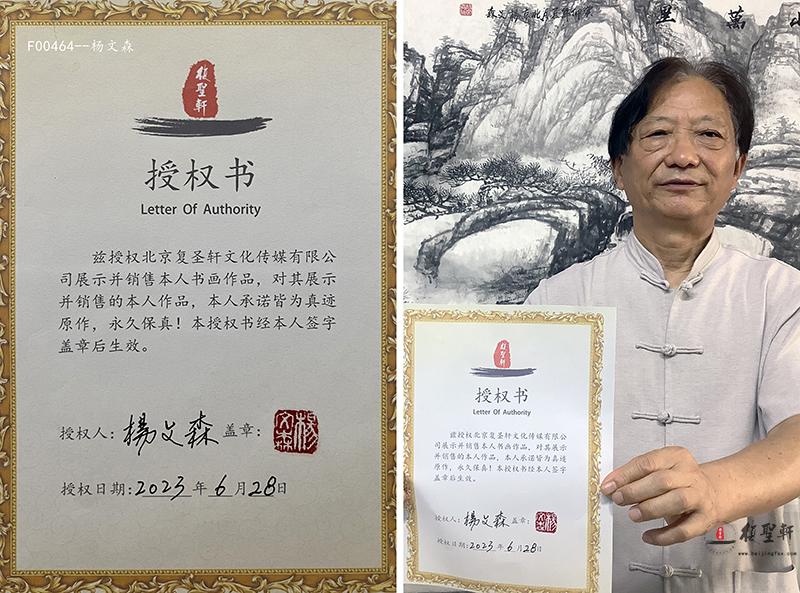 F00464--杨文森
復聖軒
授权书
Letter Of Authority
兹授权北京复圣轩文化传媒有限公
司展示并销售本人书画作品，对其展示
并销售的本人作品，本人承诺皆为真迹
原作，永久保真！本授权书经本人签字
盖章后生效。
授权人：楊文森 盖章：
楊文森
授权日期：2023年6月28日
萬里
復聖軒
授权书
Letter Of Authority
兹授权北京复圣轩文化传媒有限公
司展示并销售本人书画作品，对其展示
并销售的本人作品，本人承诺皆为真迹
原作，永久保真！本授权书经本人签字
盖章后生效。
授权人：楊文森 盖章：
楊文森
授权日期：2023年6月28日
復聖軒
www.beijingfsx.com